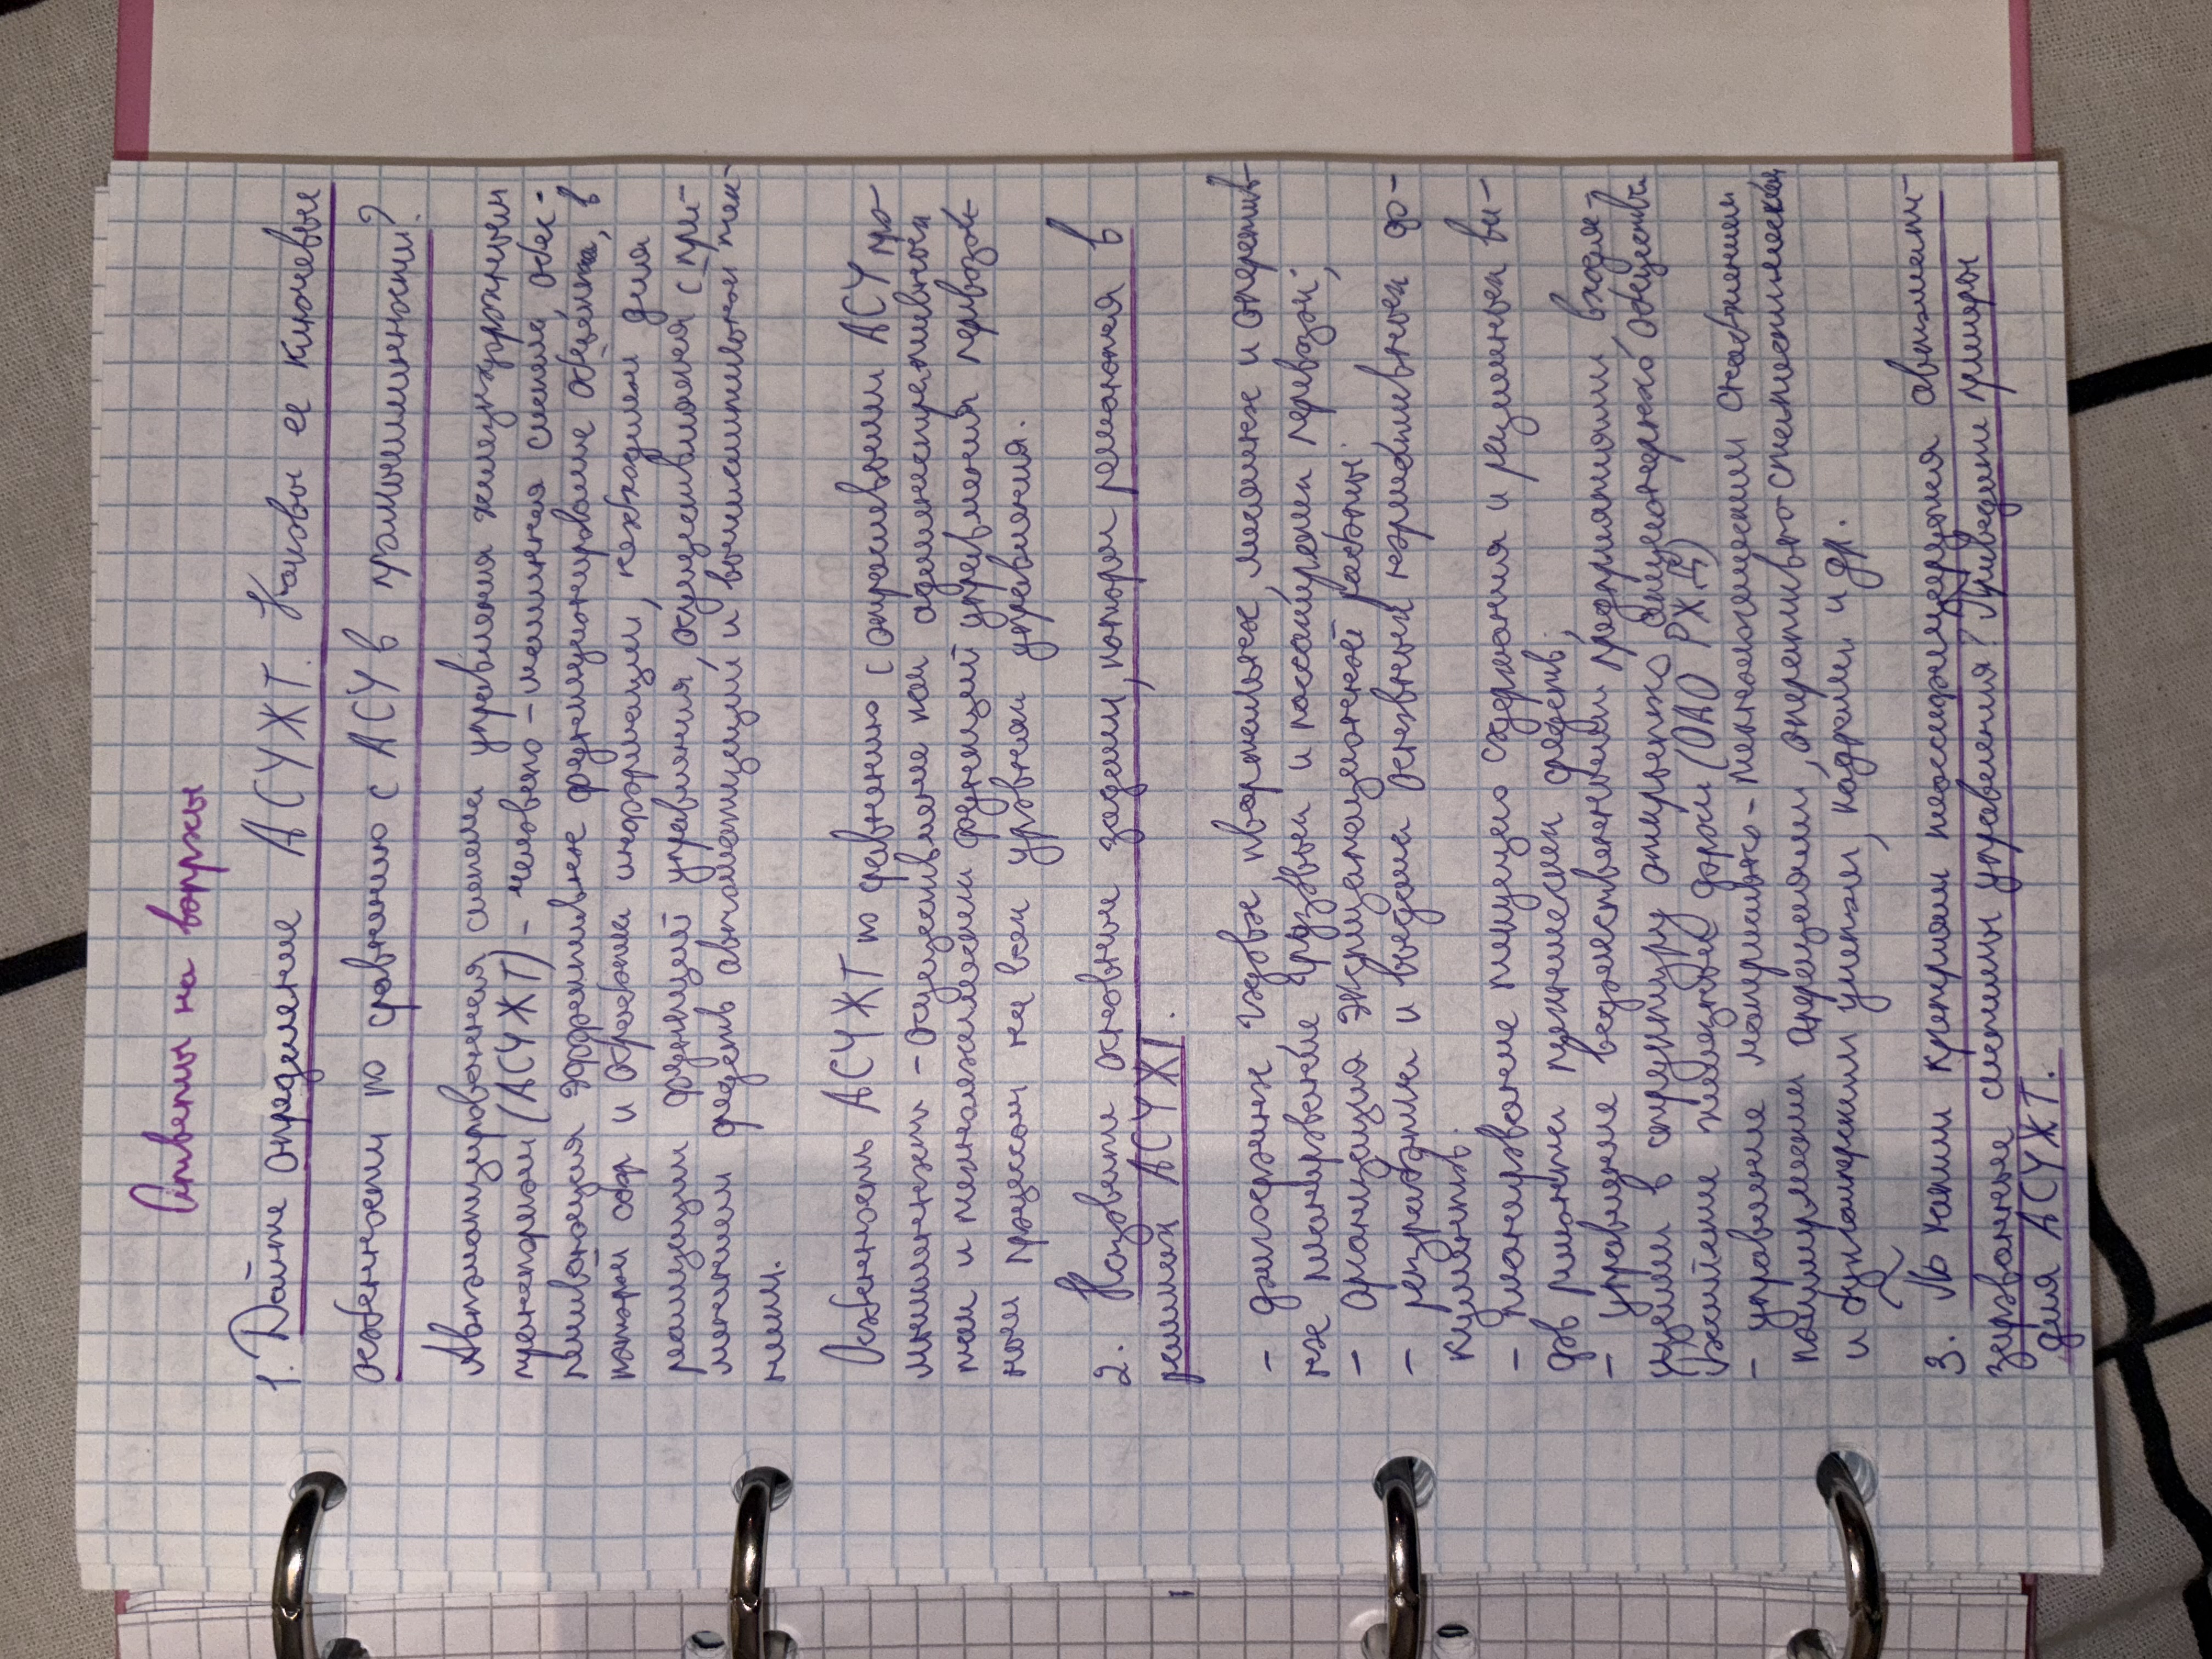 Ответы на вопросы
1. Дайте определение АСУЖТ. Каковы ее ключевые
особенности по сравнению с АСУ в промышленности?
Автоматизированная система управления железнодорожным
транспортом (АСУЖТ) - человеко-машинная система, обес-
печивающая эффективное функционирование объекта, в
котором сбор и обработка информации, необходимой для
реализации функций управления, осуществляются с при-
менением средств автоматизации и вычислительной тех-
ники.
Особенность АСУЖТ по сравнению с отраслевыми АСУ про-
мышленности - осуществление как административных
так и технологических функций управления перевозоч-
ным процессом на всех уровнях управления.
2. Назовите основные задачи, которые решаются в
рамках АСУЖТ.
- долгосрочное годовое квартальное, месячное и оператив-
ное планирование грузовых и пассажирских перевозок;
- организация эксплуатационной работы;
- разработка и выдача основных нормативных до-
кументов.
- планирование текущего содержания и ремонтных ви-
дов ремонта технических средств;
- управление ведомственными предприятиями, входя-
щими в структуру открытого акционерного общества
Российские железные дороги (ОАО РЖД)
- управление материально-техническим снабжением
финансами операциями, оперативно-статистическим
и бухгалтерским учетом, кадрами и др.
3. По каким критериям классифицируются автомати-
зированные системы управления? Приведите примеры
для АСУЖТ.